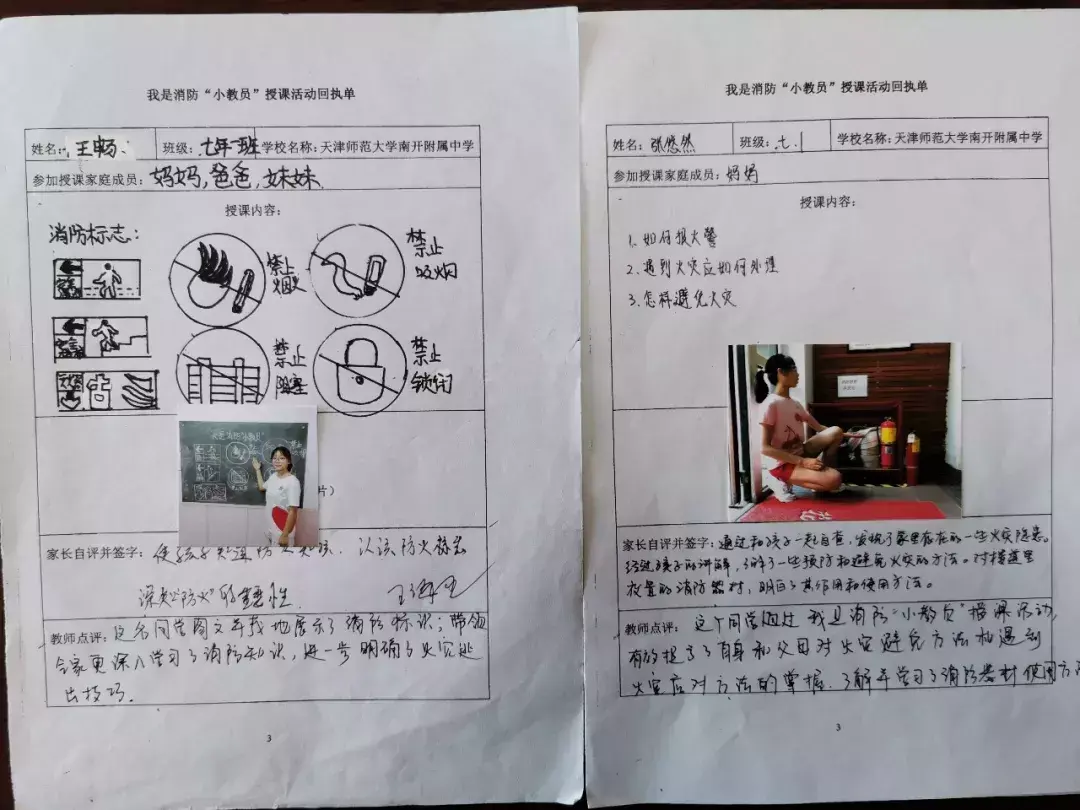 我是消防“小教员”授课活动回执单
姓名：王畅 班级：七年一班 学校名称：天津师范大学南开附属中学
参加授课家庭成员：妈妈，爸爸，妹妹
授课内容：
消防标志：
禁止
烟火
禁止
吸烟
禁止
阻塞
禁止
锁闭
片）
家长自评并签字：使孩子知道防火知识．认识防火标志
深知“防火”的重要性．
教师点评：这名同学图文并茂地展示了消防标识；带领
全家更深入学习了消防知识，进一步明确了火灾逃
出技巧．
3
我是消防“小教员”授课活动回执单
姓名：张悠然 班级：七．1 学校名称：天津师范大学南开附属中学
参加授课家庭成员：妈妈
授课内容：
1．如何报火警
2．遇到火灾应如何处理
3．怎样避免火灾
家长自评并签字：通过和孩子一起自查，发现了家里存在的一些火灾隐患。
经过孩子的讲解，了解了一些预防和避免火灾的方法。对楼道里
放置的消防器材，明白了其作用和使用方法。
教师点评：这个同学通过 我是消防“小教员”授课活动，
有效提高了自身和父母对火灾避免方法和遇到
火灾应对方法的掌握．了解并学习了消防器材使用方
3